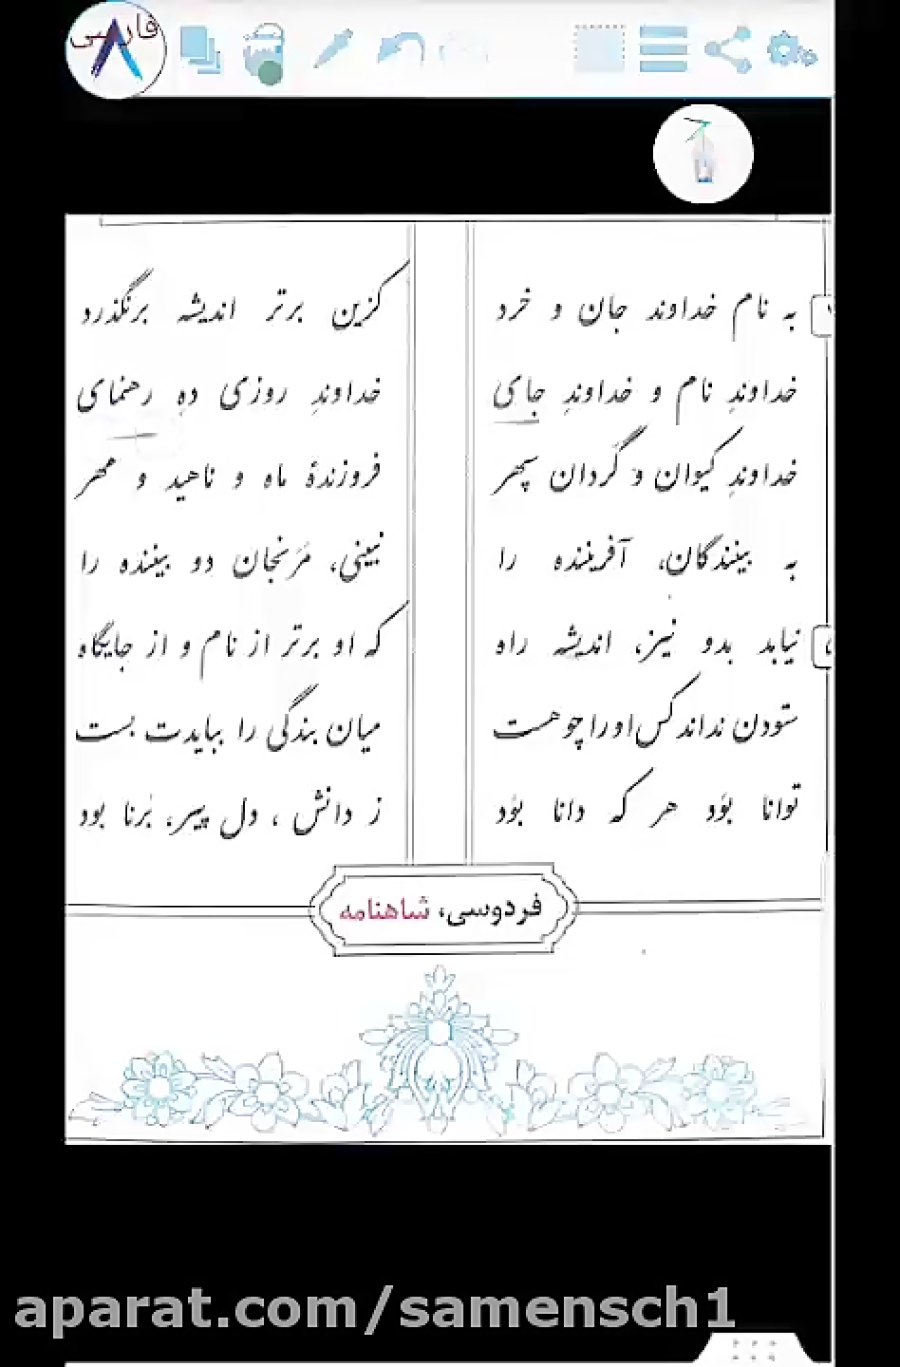 فارسی
۸
به نام خداوند جان و خرد کزین برتر اندیشه برنگذرد
خداوندِ نام و خداوندِ جای خداوندِ روزی دهِ رهنمای
خداوندِ کیوان و گَردان سپهر فروزندهٔ ماه و ناهید و مهر
به بینندگان، آفریننده را نبینی، مَرَنجان دو بیننده را
نیابد بدو نیز، اندیشه راه که او برتر از نام و از جایگاه
ستودن نداند کس او را چو هست میان بندگی را ببایدت بست
توانا بوَد هر که دانا بوَد ز دانش، دل پیر، بُرنا بود
فردوسی، شاهنامه
aparat.com/samensch1